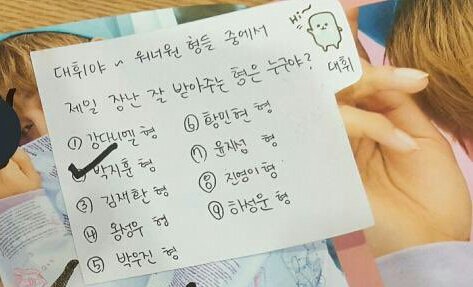 Hi~
대휘야~ 워너원 형들 중에서
제일 장난 잘 받아주는 형은 누구야? 대휘
① 강다니엘 형
박지훈 형
③ 김재환 형
④ 옹성우 형
⑤ 박우진 형
⑥ 황민현 형
⑦ 윤지성 형
⑧ 진영이 형
⑨ 하성운 형